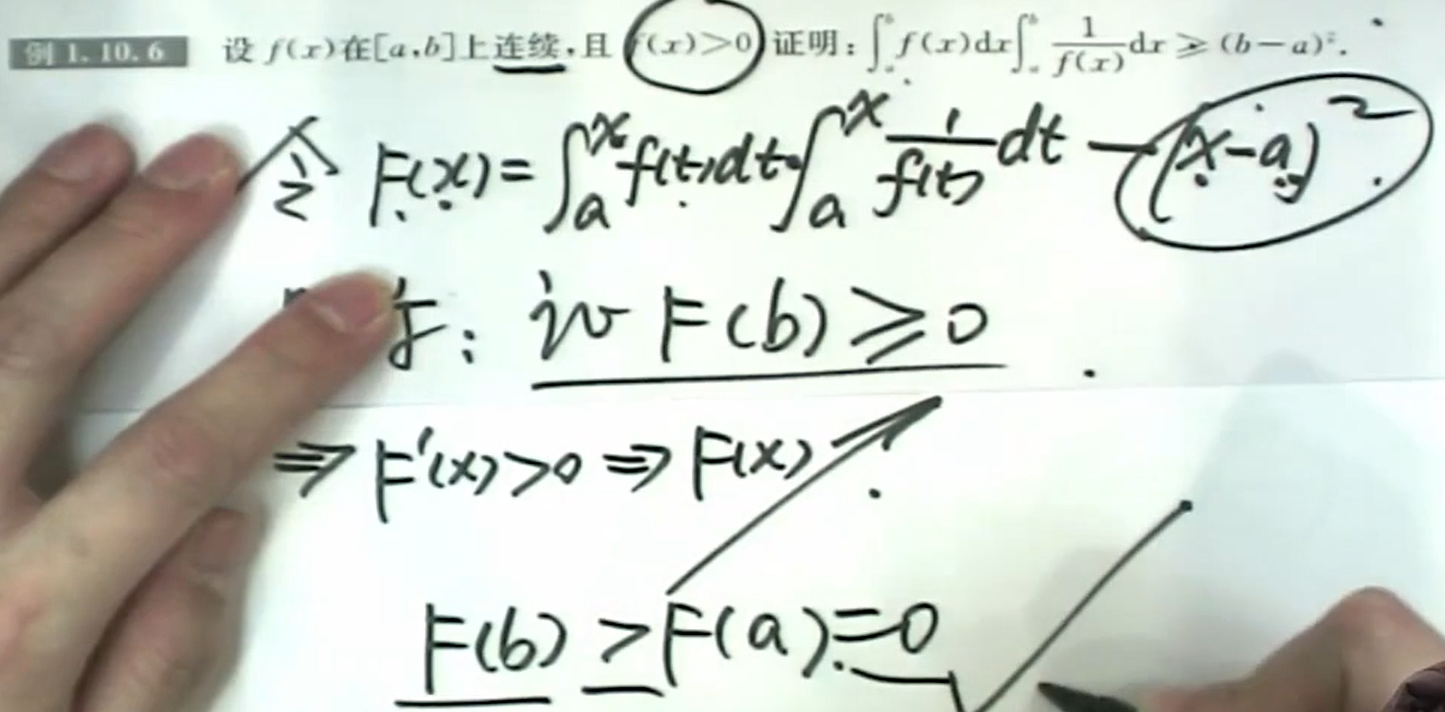 例 1.10.6 设 f(x)在[a,b]上连续,且 f(x)>0 证明:∫_a^b f(x)dx∫_a^b 1/f(x) dx ≥ (b-a)².
令 F(x)=∫_a^x f(t)dt·∫_a^x 1/f(t) dt -(x-a)²
: 证 F(b)≥0
⇒ F'(x)>0 ⇒ F(x)↗
F(b)≥F(a)=0